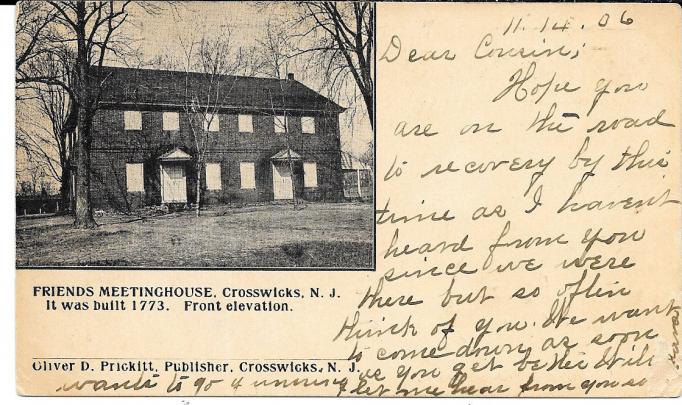 FRIENDS MEETINGHOUSE, Crosswicks, N. J.
It was built 1773. Front elevation.
Oliver D. Prickitt, Publisher, Crosswicks, N. J.
11.14.06
Dear Cousin;
Hope you
are on the road
to recovery by this
time as I havent
heard from you
since we were
there but so often
think of you. We want
to come down as soon
as you get better Will
wants to go & let me hear from you so